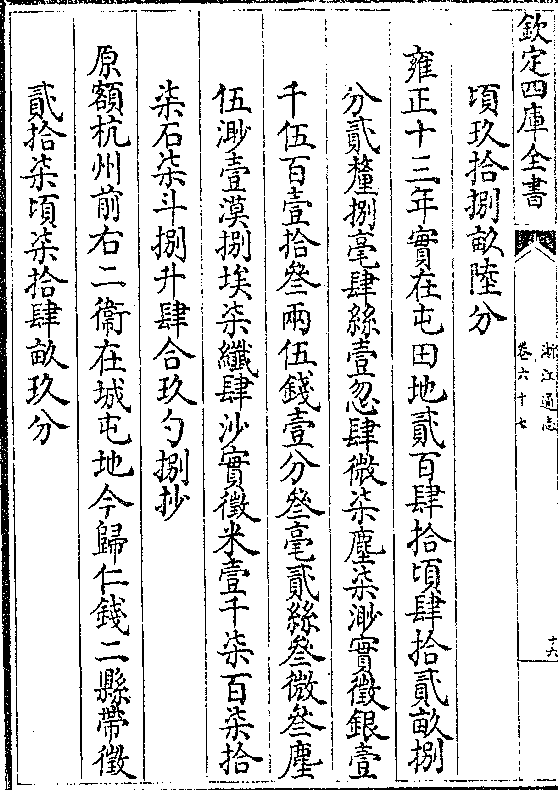 欽定四庫全書
浙江通志
卷六十七
十六
頃玖拾捌畝陸分
雍正十三年實在屯田地貳百肆拾頃肆拾貳畝捌
分貳釐捌毫肆絲壹忽肆微柒塵柒渺實徵銀壹
千伍百壹拾叄兩伍錢壹分叄毫貳絲叄微叄塵
伍渺壹漠捌埃柒纖肆沙實徵米壹千柒百柒拾
柒石柒斗捌升肆合玖勺捌抄
原額杭州前右二衞在城屯地今歸仁錢二縣帶徵
貳拾柒頃柒拾肆畝玖分